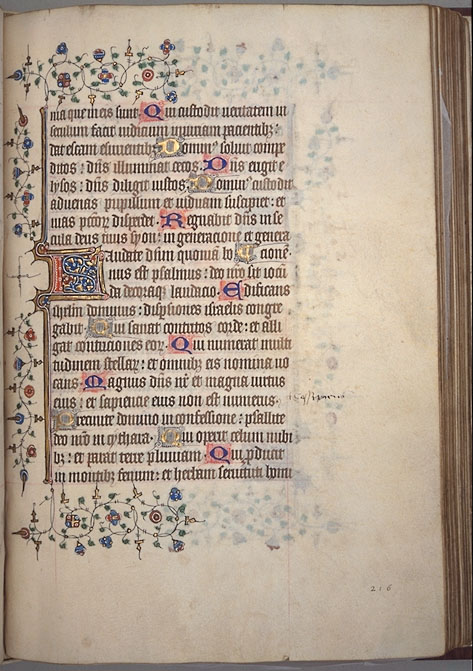 nia que in eis sunt. Qui custodit ueritatem in
seculum facit iudicium iniuriam pacientibꝫ:
dat escam esurientibꝫ. Dominus soluit compe
ditos: dñs illuminat cecos. Dñs erigit e
lysos: dñs diligit iustos. Dominus custodit
aduenas pupillum et uiduam suscipiet: et
uias pctor̄ disperdet. Regnabit dñs in se
cula deus tuus syon: in generacione et genera
Laudate dñm quoniam bo cione.
nus est psalmus: deo nr̄o sit iocū
da decoraqꝫ laudacio. Edificans
ihrlm dominus: dispsiones israelis congre
gabit. Qui sanat contritos corde: et alli
gat contriciones eor̄. Qui numerat multi
tudinem stellar̄: et omnibꝫ eis nomina uo
cans. Magnus dñs nr̄ et magna uirtus
eius: et sapiencie eius non est numerus.
Precinite domino in confessione: psallite
deo nr̄o in cythara. Qui operit celum nubi
bꝫ: et parat terre pluuiam. Qui pducit
in montibꝫ fenum: et herbam seruituti homi
216